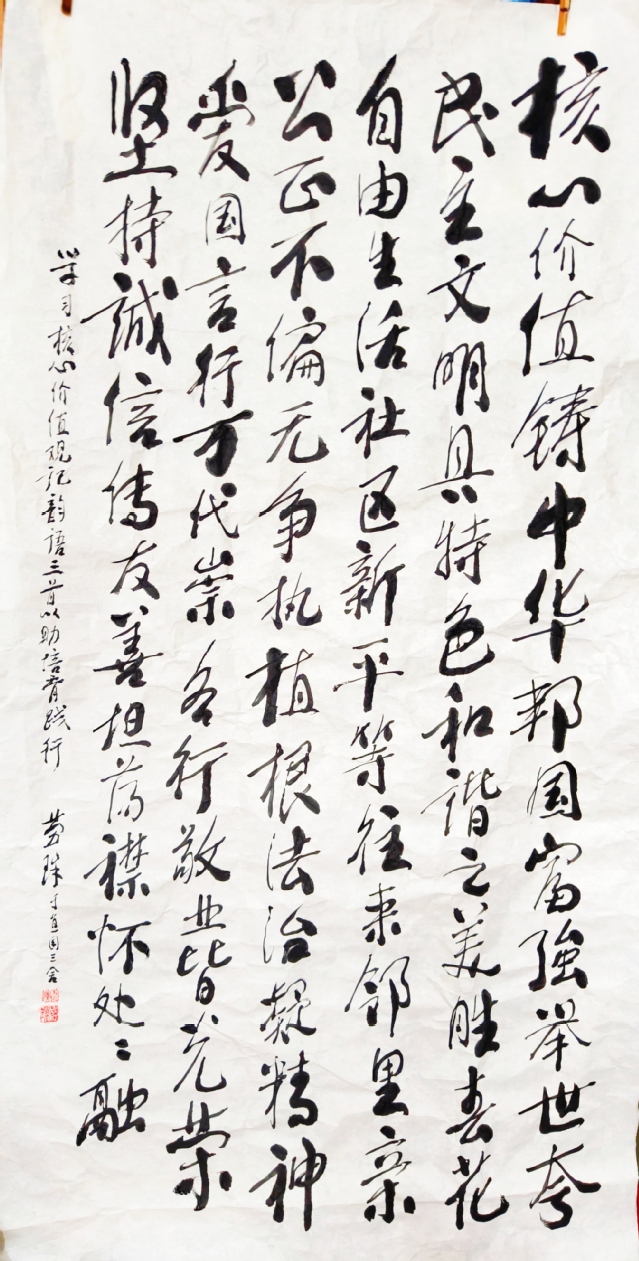 核心价值铸中华邦国富強举世夸
民主文明具特色和谐之美胜春花
自由生活社区新平等往来邻里亲
公正不偏无争执植根法治凝精神
爱国言行万代崇各行敬业皆光荣
坚持誠信传友善坦荡襟怀处〻融
学习核心价值观记韵语三首以助培育践行